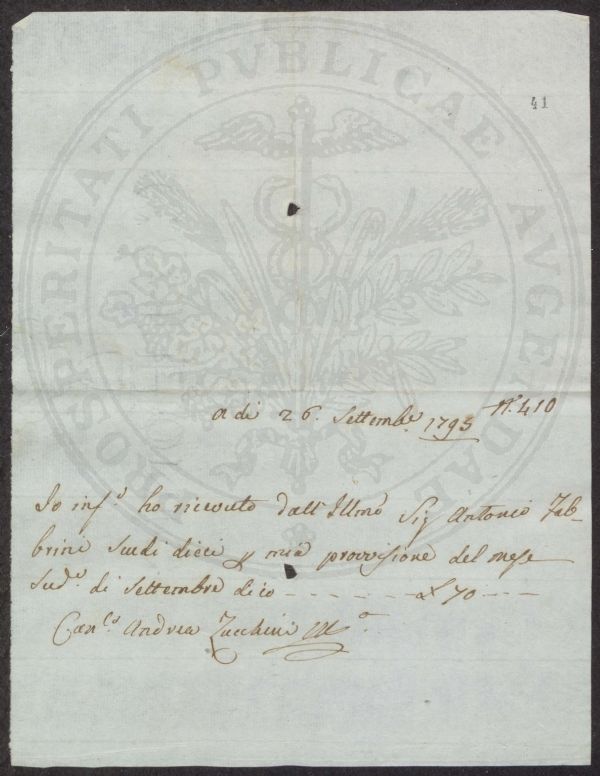 41
PROSPERITATI PVBLICAE AVGENDAE
A di 26. Settemb.e 1795 N.o 410
Io inf.o ho ricevuto dall'Illmo Sig Antonio Fab-
brini scudi dieci p mia provvisione del mese
sud.o di Settembre dico - - - - - - - £ 70 - - -
Can.co Andrea Zucchini